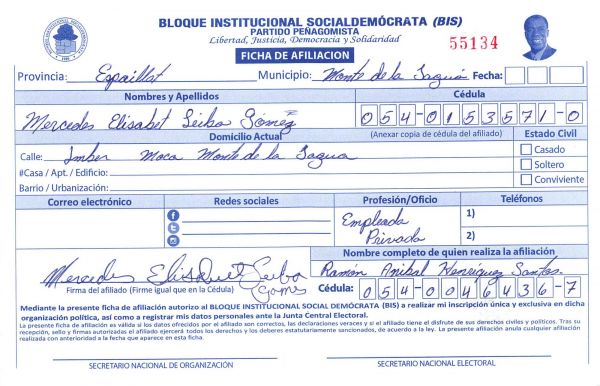 BLOQUE INSTITUCIONAL SOCIALDEMÓCRATA (BIS)
PARTIDO PEÑAGOMISTA
Libertad, Justicia, Democracia y Solidaridad
55134
FICHA DE AFILIACION
Provincia: Espaillat Municipio: Monte de la Jagua Fecha:
Nombres y Apellidos Cédula
Mercedes Elisabet Leiba Gómez 054-0153571-0
Domicilio Actual (Anexar copia de cédula del afiliado) Estado Civil
Calle: Imber Moca Monte de la Jagua Casado
#Casa / Apt. / Edificio: Soltero
Barrio / Urbanización: Conviviente
Correo electrónico Redes sociales Profesión/Oficio Teléfonos
Empleada 1)
Privada 2)
Nombre completo de quien realiza la afiliación
Mercedes Elisabet Leiba Ramón Anibal Henríquez Santos
Gomez
Firma del afiliado (Firme igual que en la Cédula) Cédula: 054-0046436-7
Mediante la presente ficha de afiliación autorizo al BLOQUE INSTITUCIONAL SOCIAL DEMÓCRATA (BIS) a realizar mi inscripción única y exclusiva en dicha
organización política, así como a registrar mis datos personales ante la Junta Central Electoral.
La presente ficha de afiliación es válida si los datos ofrecidos por el afiliado son correctos, las declaraciones veraces y si el afiliado tiene el disfrute de sus derechos civiles y políticos. Tras su
recepción, sello y firmas autorizadas el afiliado ejercerá todos los derechos y los deberes estatutariamente sancionados, de acuerdo a la ley. La presente afiliación anula cualquier afiliación
realizada con anterioridad a la fecha que aparece en esta ficha.
SECRETARIO NACIONAL DE ORGANIZACIÓN SECRETARIO NACIONAL ELECTORAL